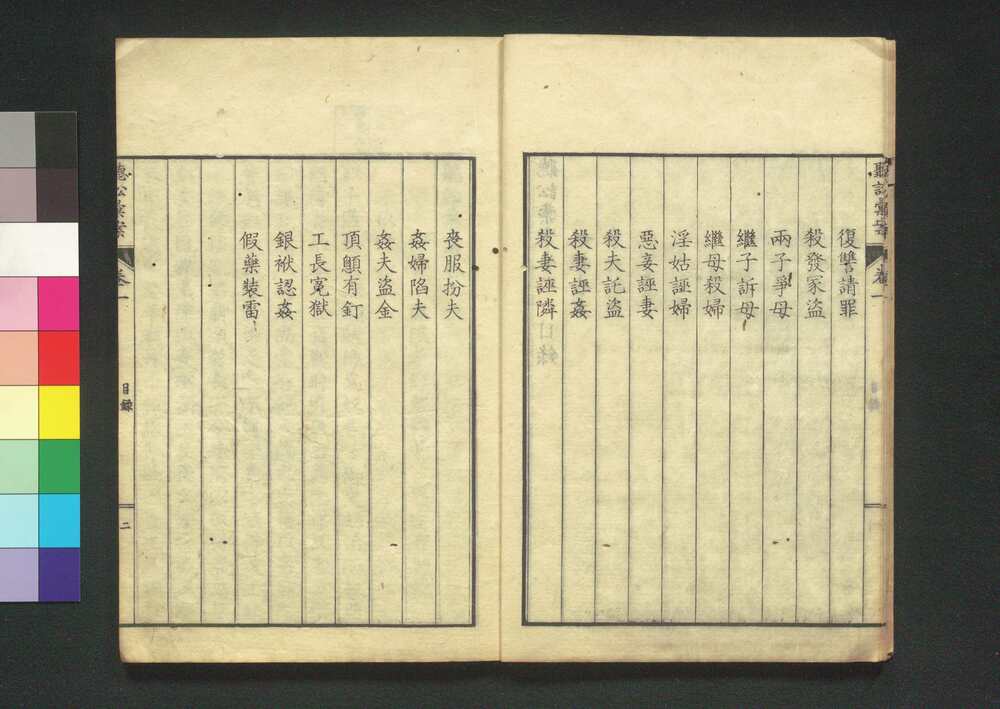 復讐請罪
殺發冢盜
兩子爭母
繼子訴母
繼母殺婦
淫姑誣婦
惡妾誣妻
殺夫託盜
殺妻誣姦
殺妻誣隣
喪服扮夫
姦婦陷夫
姦夫盜金
頂顖有釘
工長冤獄
銀袱認姦
假藥裝雷
聽訟彙案
卷一
目録
二